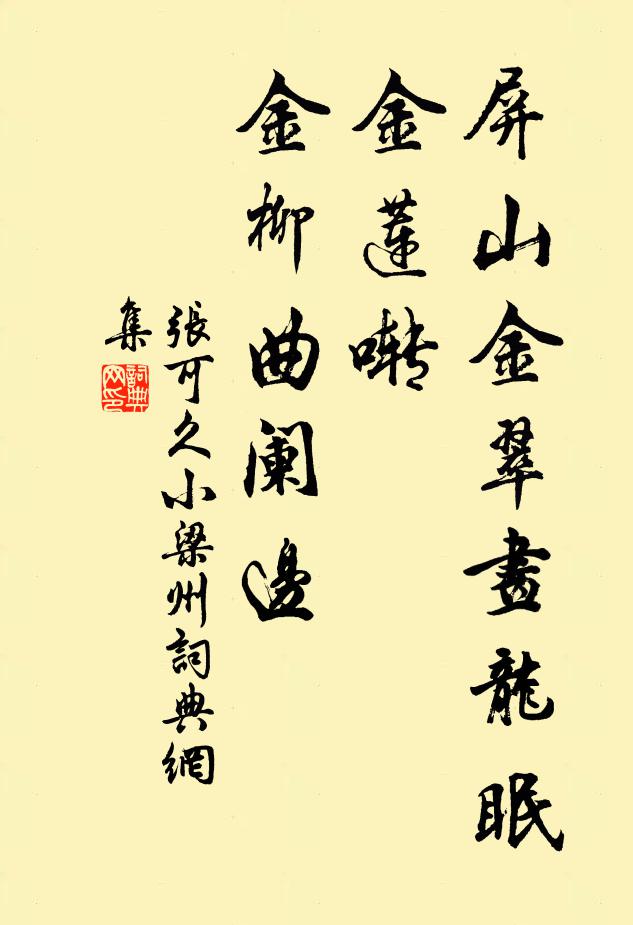 屏山金翠畫龍眠
金蓮囀
金柳曲闌邊
張可久小梁州詞典網
集
詞典
网印